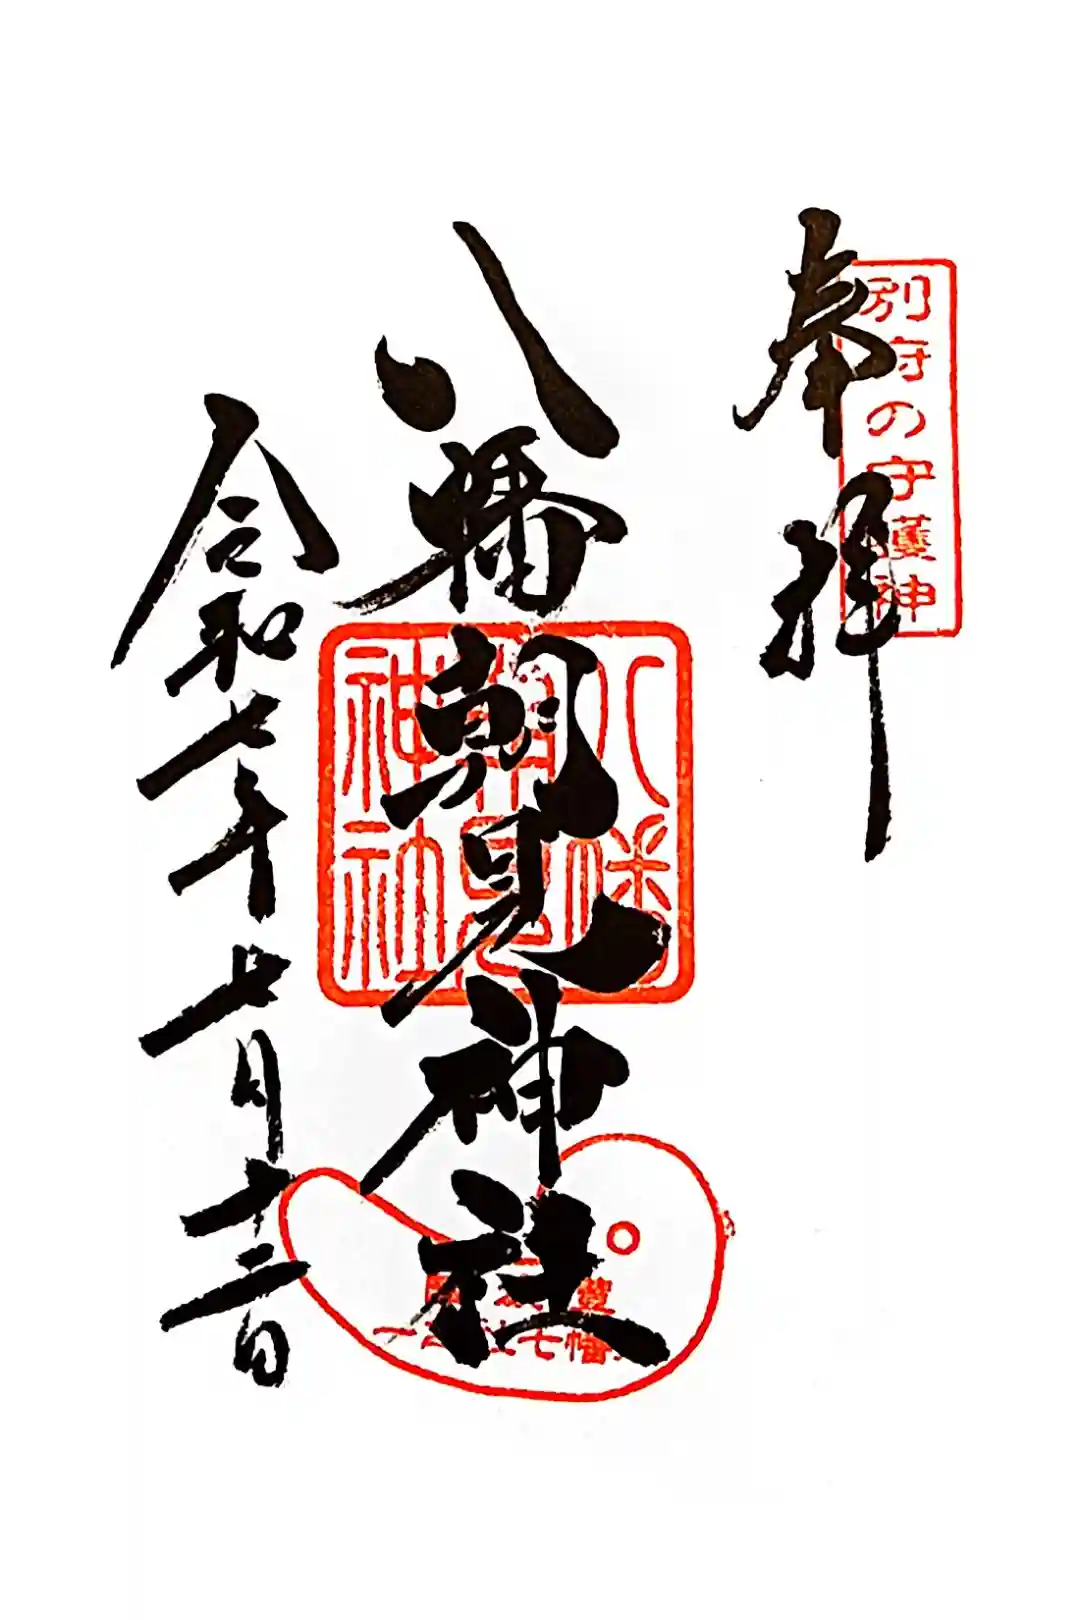 奉拝
別府の守護神
八幡朝見神社
八幡
朝見
神社
令和七年七月十三日